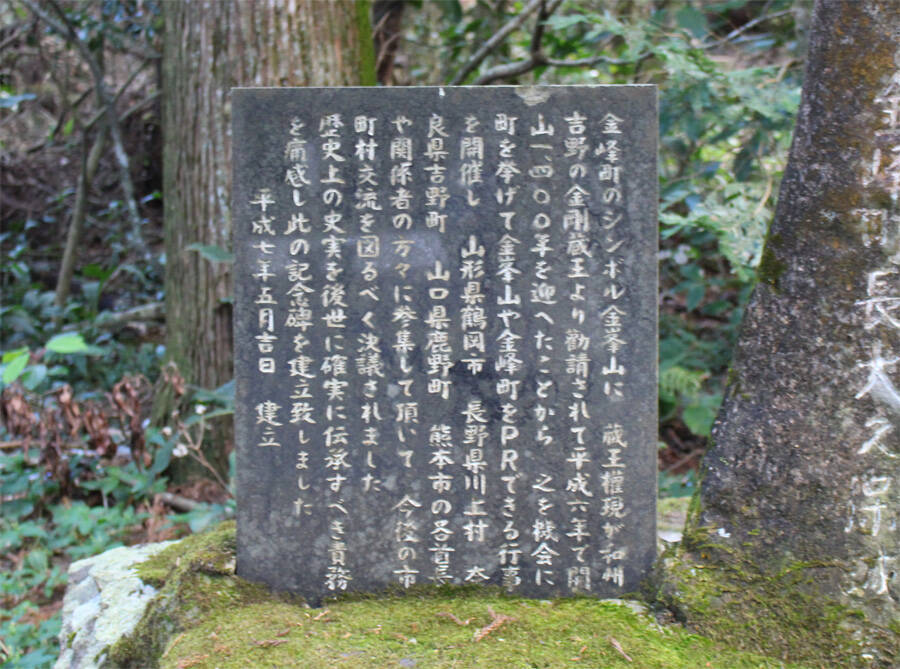 金峰町のシンボル金峯山に　蔵王權現が和州
吉野の金剛蔵王より勸請されて平成六年で開
山一、四〇〇年を迎へたことから　之を機会に
町を挙げて金峯山や金峰町をPRできる行事
を開催し　山形県鶴岡市　長野県川上村　奈
良県吉野町　山口県鹿野町　熊本市の各首長
や関係者の方々に参集して頂いて　今後の市
町村交流を図るべく決議されました
歴史上の史実を後世に確実に伝承すべき責務
を痛感し此の記念碑を建立致しました
平成七年五月吉日　建立
町長大久保